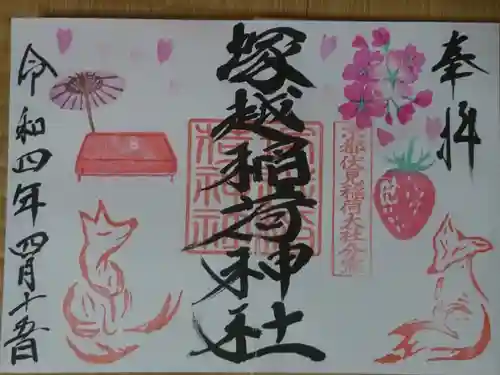 奉拝
京都伏見稲荷大社分霊
塚越稲荷神社
令和四年四月十五日